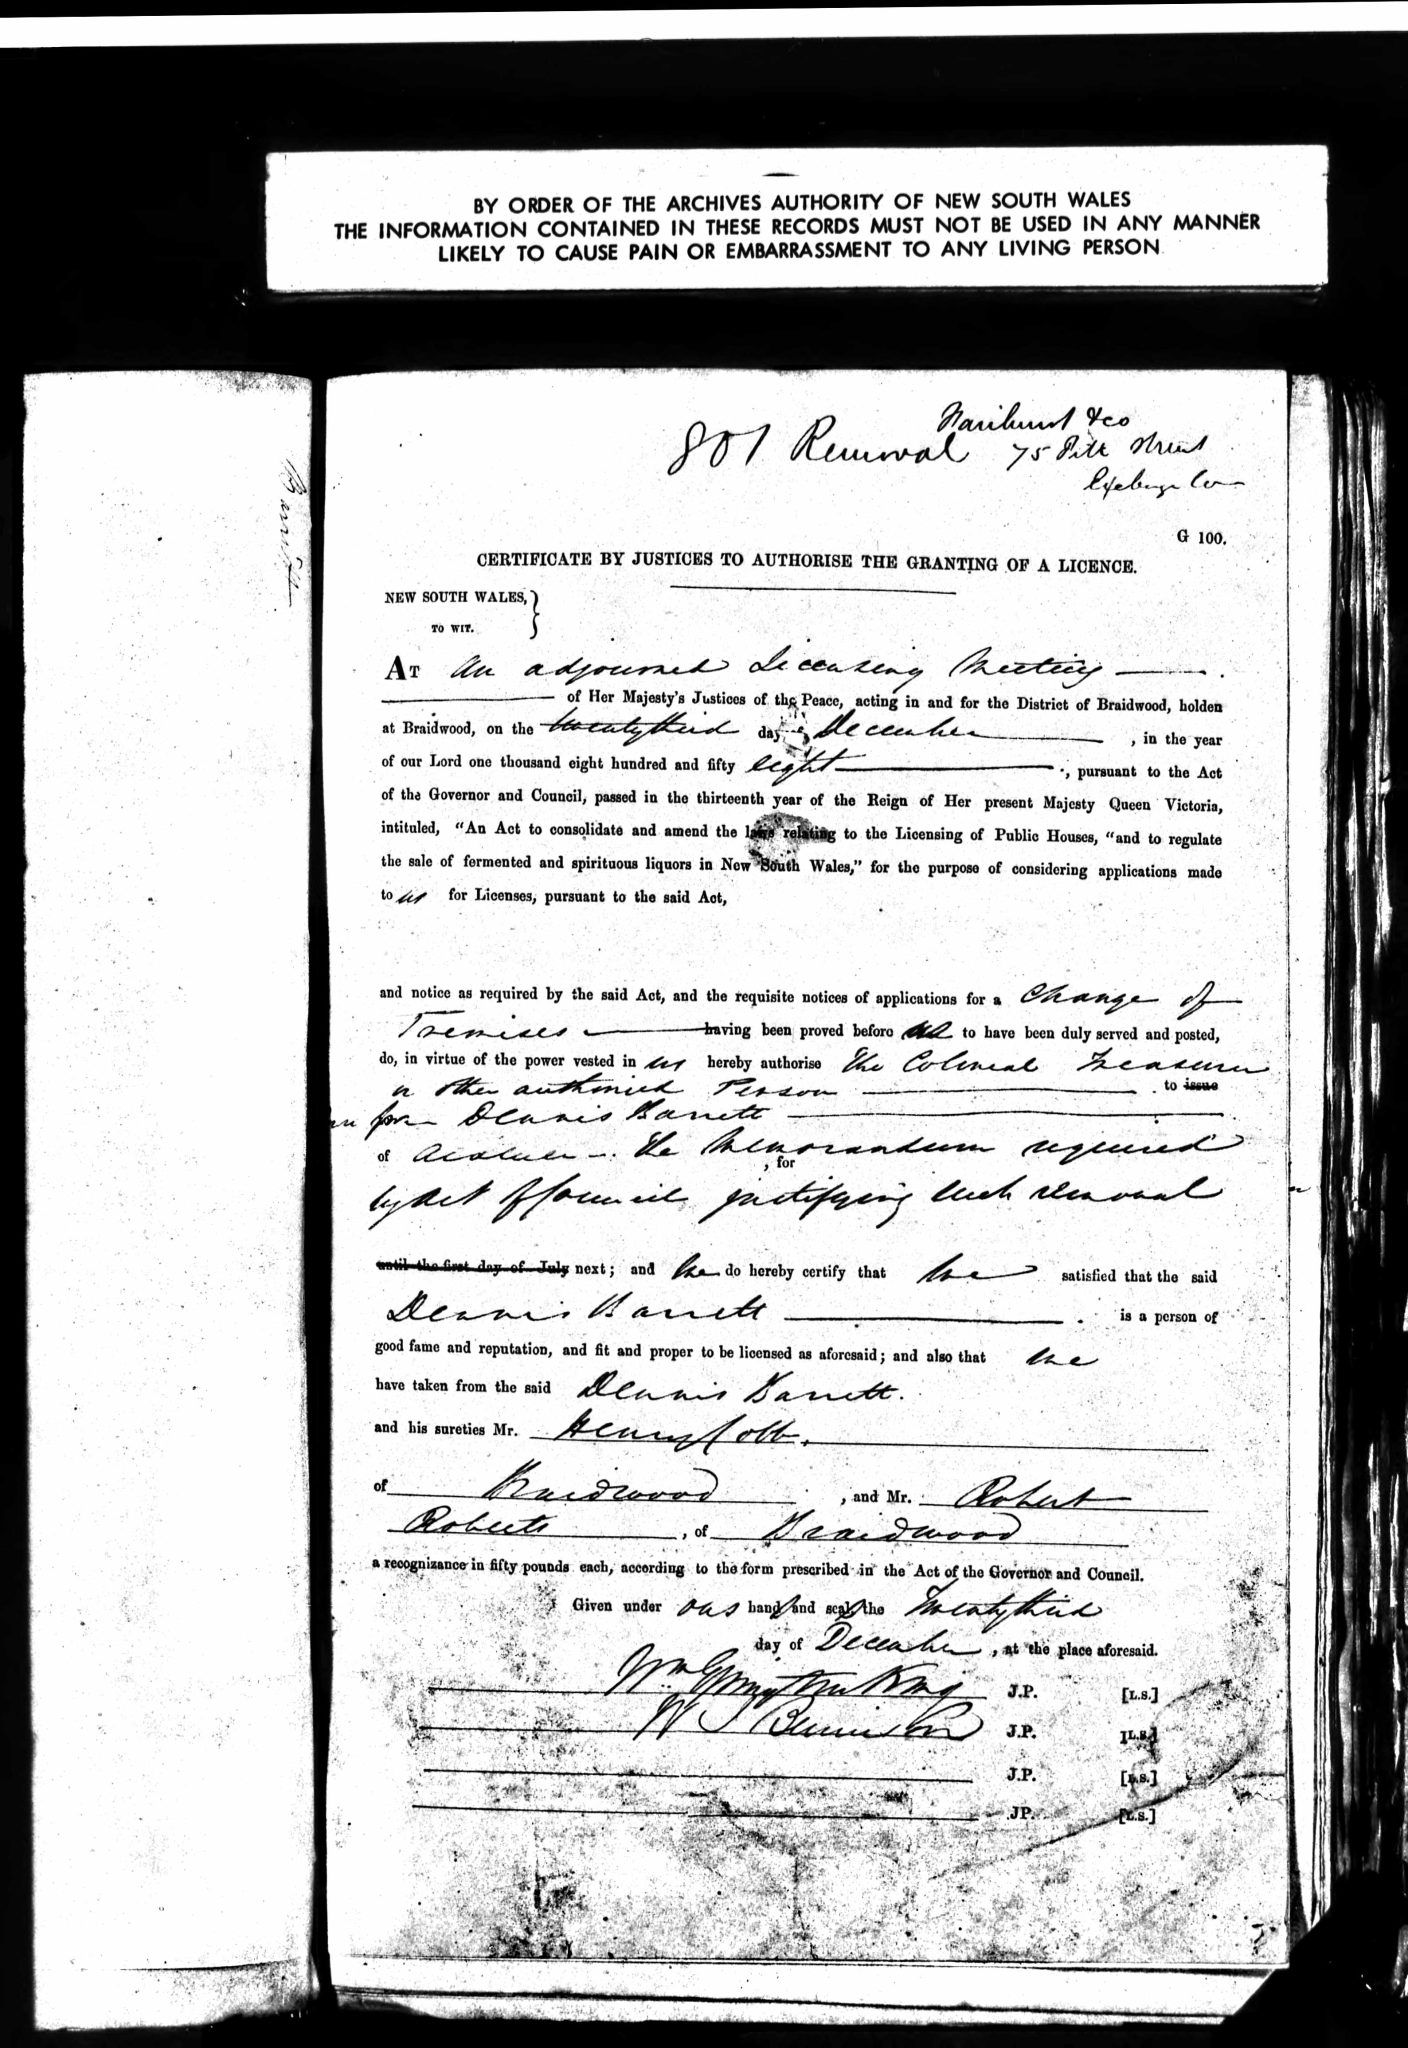 BY ORDER OF THE ARCHIVES AUTHORITY OF NEW SOUTH WALES
THE INFORMATION CONTAINED IN THESE RECORDS MUST NOT BE USED IN ANY MANNER
LIKELY TO CAUSE PAIN OR EMBARRASSMENT TO ANY LIVING PERSON
& Co
801 Removal 75 Pitt Street
G 100.
CERTIFICATE BY JUSTICES TO AUTHORISE THE GRANTING OF A LICENCE.
NEW SOUTH WALES, }
TO WIT.
AT An adjourned Licensing Meeting
of Her Majesty's Justices of the Peace, acting in and for the District of Braidwood, holden
at Braidwood, on the twentythird day of December , in the year
of our Lord one thousand eight hundred and fifty eight , pursuant to the Act
of the Governor and Council, passed in the thirteenth year of the Reign of Her present Majesty Queen Victoria,
intituled, "An Act to consolidate and amend the laws relating to the Licensing of Public Houses, "and to regulate
the sale of fermented and spirituous liquors in New South Wales," for the purpose of considering applications made
to us for Licenses, pursuant to the said Act,
and notice as required by the said Act, and the requisite notices of applications for a Change of
Premises having been proved before us to have been duly served and posted,
do, in virtue of the power vested in us hereby authorise the Colonial Treasurer
or other authorised Person to issue
Dennis Barrett
of Araluen the Memorandum required
, for
by Act of Council justifying such removal
until the first day of July next; and we do hereby certify that we satisfied that the said
Dennis Barrett is a person of
good fame and reputation, and fit and proper to be licensed as aforesaid; and also that we
have taken from the said Dennis Barrett.
and his sureties Mr. Henry Cobb.
of Braidwood , and Mr. Robert
Roberts , of Braidwood
a recognizance in fifty pounds each, according to the form prescribed in the Act of the Governor and Council.
Given under our hands and seals the Twentythird
day of December , at the place aforesaid.
J.P. [L.S.]
J.P. [L.S.]
J.P. [L.S.]
JP. [L.S.]
Barrett